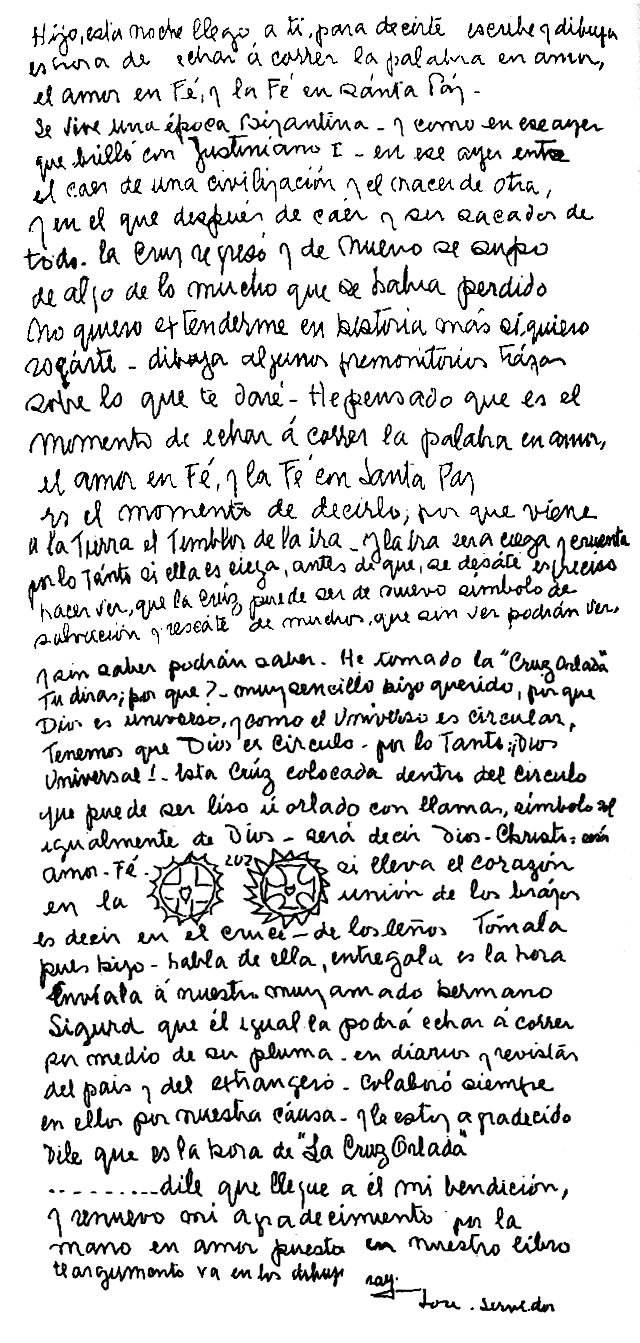 Hijo, esta noche llego a ti, para decirte escribe y dibuja
es hora de echar á correr la palabra en amor,
el amor en Fé, y la Fé en Santa Páz -
Se vive una época Bizantina - y como en ese ayer
que brilló con Justiniano I - en ese ayer entre
el caer de una civilización y el nacer de otra,
y en el que después de caer y ser sacados de
todo. la Cruz regresó y de nuevo se supo
de algo de lo mucho que se habia perdido
no quiero extenderme en historia más sí, quiero
rogárte - dibuja algunos premonitorios trázos
sobre lo que te daré - He pensado que es el
momento de echar á correr la palabra en amor,
el amor en Fé, y la Fé en Santa Paz
es el momento de decirlo, por que viene
a la Tierra el Temblor de la ira - y la ira será ciega y cruenta
por lo Tánto si ella es ciega, antes de que, se desáte es preciso
hacer ver, que la Crúz puede ser de nuevo símbolo de
salvación y rescáte de muchos, que sin ver podrán ver,
y sin saber podrán saber. He tomado la "Cruz Orlada"
Tu diras; por que? - muy sencillo hijo querido, por que
Dios es universo, y como el Universo es circular,
Tenemos que Dios es Circulo - por lo Tanto: ¡Dios
Universal! - Esta Crúz colocada dentro del circulo
que puede ser liso ú orlado con llamas, símbolo
igualmente de Dios - será decir Dios - Christo =
amor - Fé - LUZ si lleva el corazón
en la unión de los brázos
es decir en el cruce - de los leños Tómala
pues hijo - habla de ella, entregala es la hora
Envíala á nuestro muy amado hermano
Sigurd que él igual la podrá echar á correr
por medio de su pluma - en diarios y revistás
del pais y del extrangero - Colaboró siempre
en ellos por nuestra cáusa - y le estoy agradecido
Dile que es la hora de "La Cruz Orlada"
.......... dile que llegue a él mi bendición,
y renuevo mi agradecimiento por la
mano en amor puesta en nuestro libro
te argumento va en los dibuj
José. Servidor